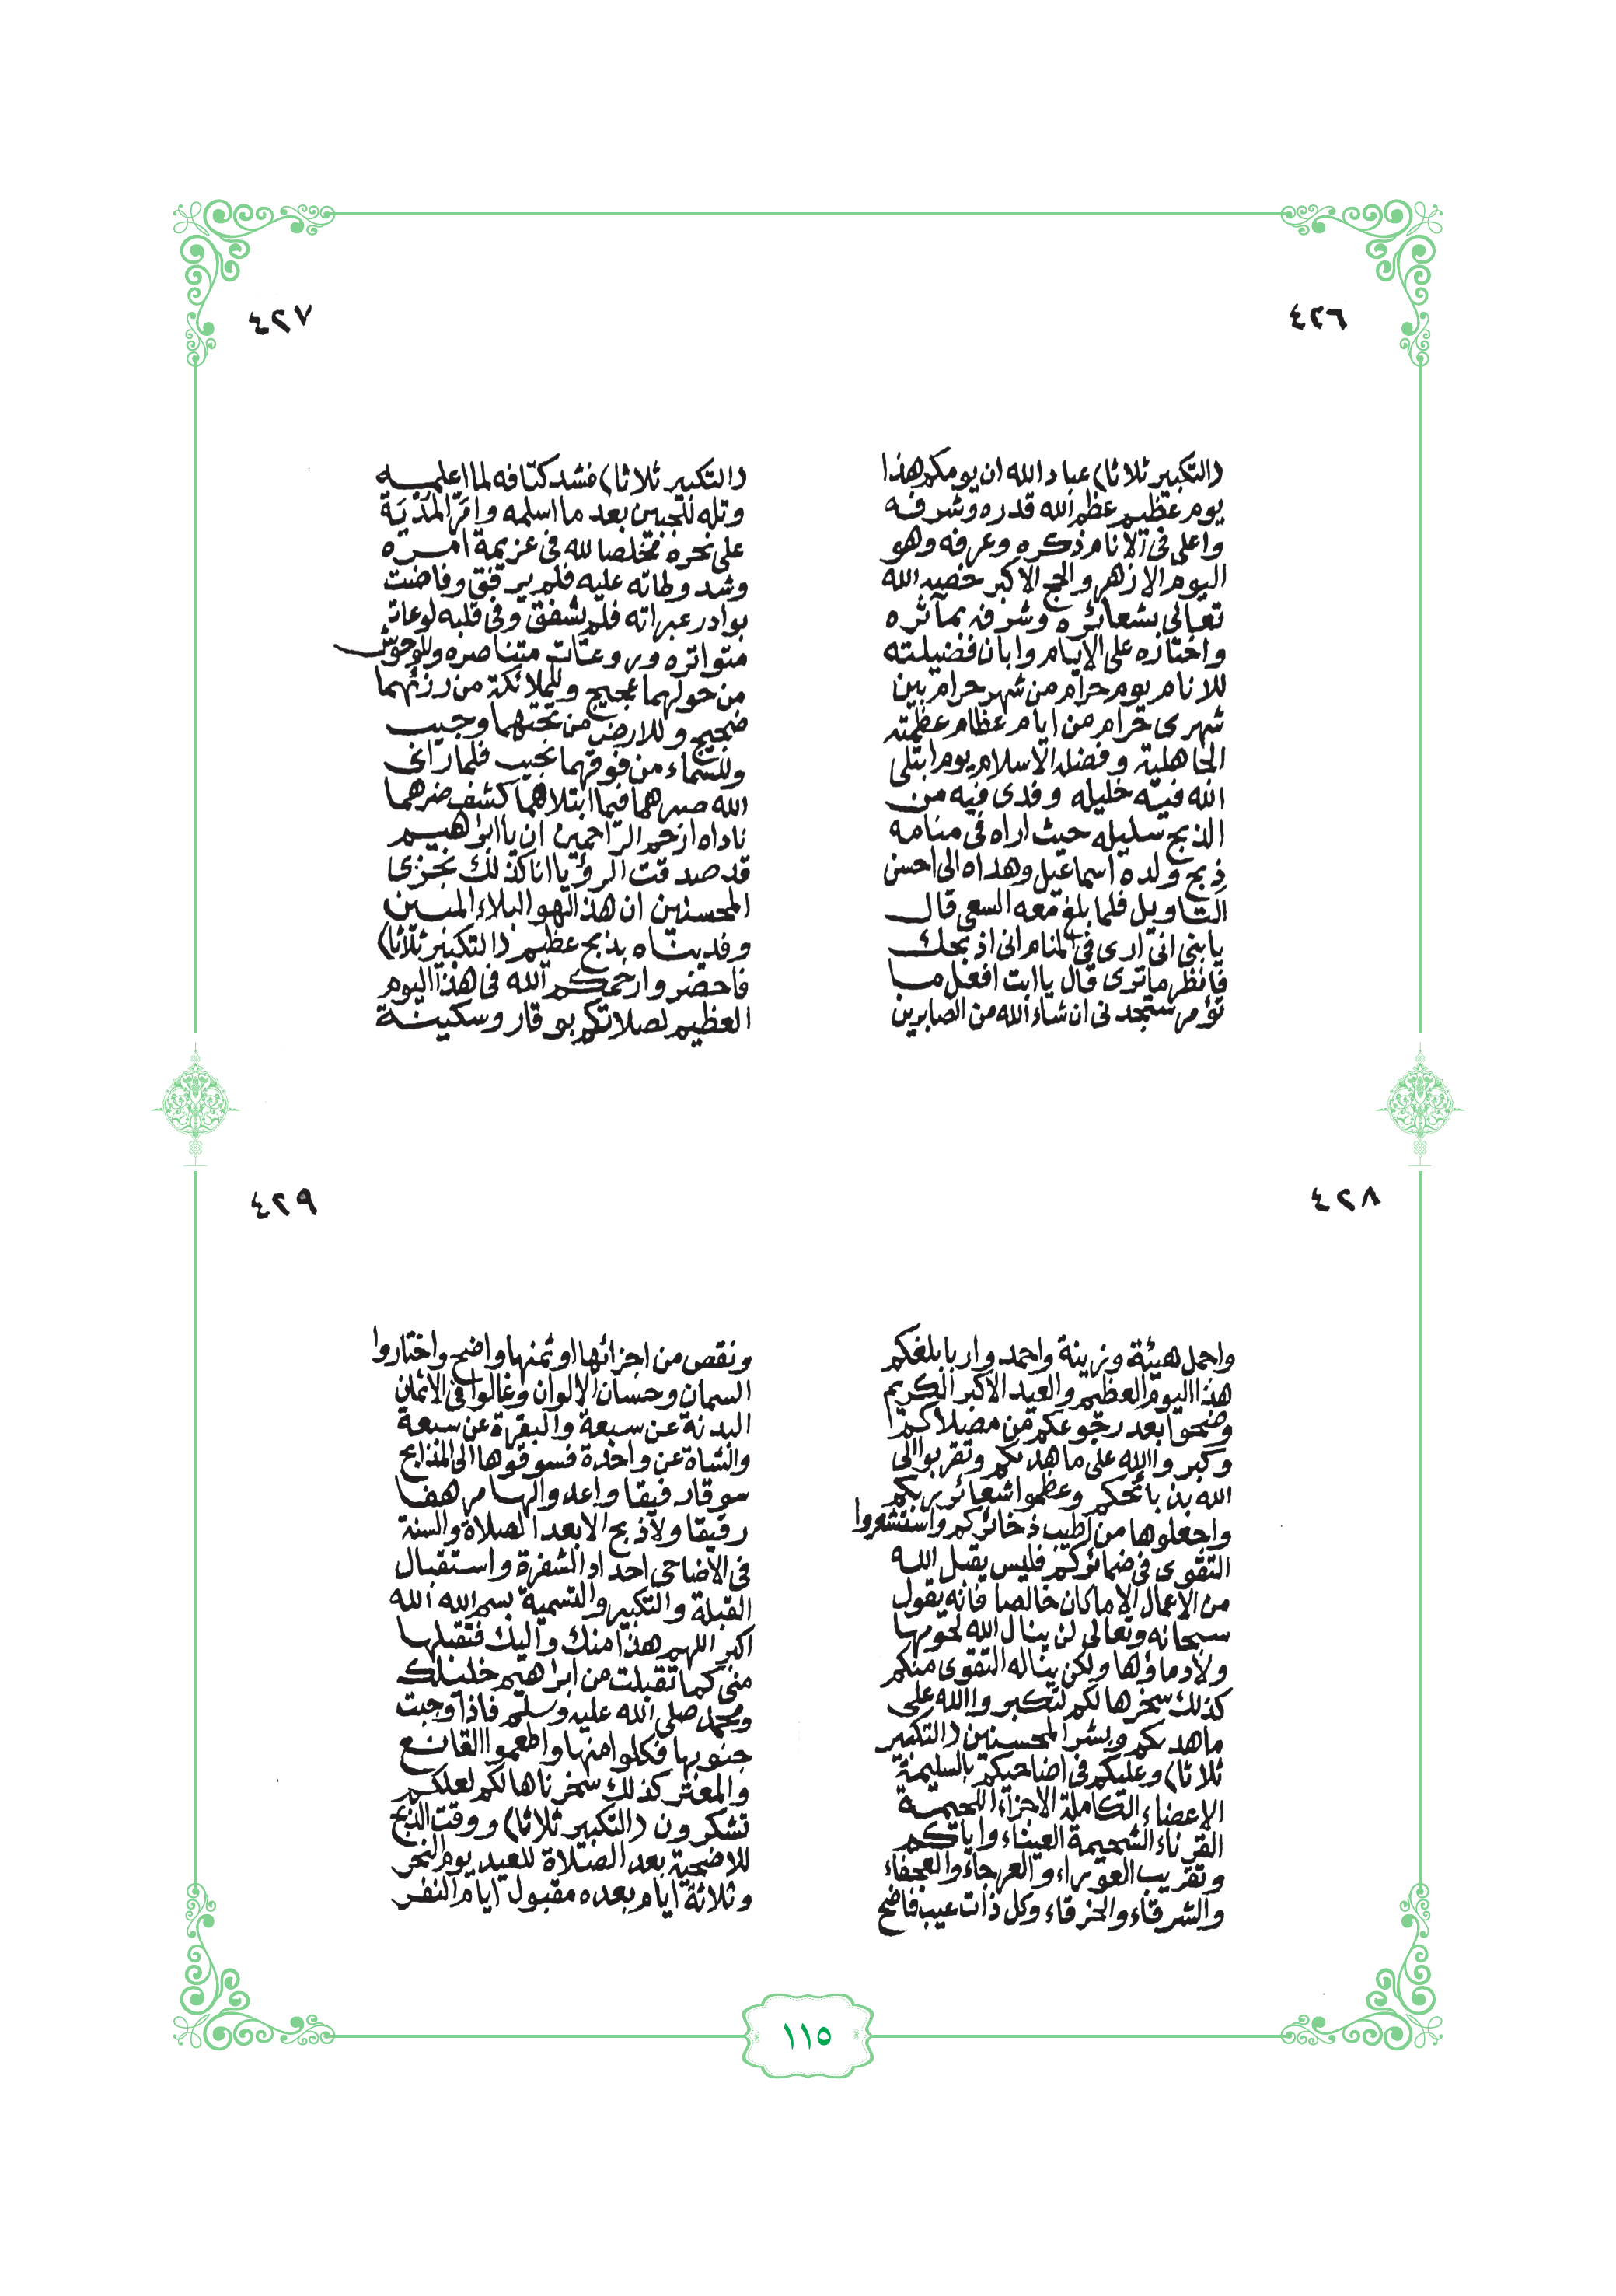 ٤٢٦
(التكبير ثلاثا) عباد الله ان يومكم هذا
يوم عظيم عظم الله قدره وشرفه
واعلى في الانام ذكره وعرفه وهو
اليوم الازهر والحج الاكبر خصه الله
تعالى بشعائره وشرفه بمآثره
واختاره على الايام وابان فضيلته
للانام يوم حرام من شهر حرام بين
شهرى حرام من ايام عظام عظمته
الجاهلية وفضله الاسلام يوم ابتلى
الله فيه خليله وفدى فيه من
الذبح سليله حيث اراه في منامه
ذبح ولده اسماعيل وهداه الى احسن
التاويل فلما بلغ معه السعي قال
يا بني اني ارى في المنام اني اذبحك
فانظر ماترى قال يا ابت افعل ما
تؤمر ستجدنى ان شاء الله من الصابرين
٤٢٧
(التكبير ثلاثا) فشد كتافه لما اعلمه
وتله للجبين بعد ما اسلمه وامرّ المدية
على نحره مخلصا لله في عزيمة امره
وشد وطاته عليه فلم يرفق وفاضت
بوادر عبراته فلم يشفق وفي قلبه لوعات
متواتره وروعات متناصره وللوحوش
من حولهما عجيج وللملائكة من رزئهما
ضجيج وللارض من تحتهما وجيب
وللسماء من فوقهما نحيب فلما راى
الله صبرهما فيما ابتلاهما كشف ضرهما
ناداه ارحم الراحمين ان يا ابراهيم
قد صدقت الرؤيا انا كذلك نجزى
المحسنين ان هذا لهو البلاء المبين
وفديناه بذبح عظيم (التكبير ثلاثا)
فاحضروا رحمكم الله فى هذا اليوم
العظيم لصلاتكم بوقار وسكينة
٤٢٨
واجمل هيئة وزينة واحمدوا ربا بلغكم
هذا اليوم العظيم والعيد الاكبر الكريم
وضحوا بعد رجوعكم من مصلاكم
وكبروا الله على ما هدىكم وتقربوا الى
الله بذبائحكم وعظموا شعائر ربكم
واجعلوها من اطيب ذخائركم واستشعروا
التقوى في ضمائركم فليس يقبل الله
من الاعمال الا ما كان خالصا فانه يقول
سبحانه وتعالى لن ينال الله لحومها
ولا دماؤها ولكن يناله التقوى منكم
كذلك سخرها لكم لتكبروا الله على
ما هدىكم وبشر المحسنين (التكبير
ثلاثا) وعليكم في اضاحيكم بالسليمة
الاعضاء الكاملة الاجزاء اللحيمة
القرناء الشحيمة العيناء واياكم
وتقريب العوراء والعرجاء والعجفاء
والشرقاء والخرقاء وكل ذات عيب فاضح
٤٢٩
ونقص من اجزائها او ثمنها واضح واختاروا
السمان وحسان الالوان وغالوا في الاثمان
البدنة عن سبعة والبقرة عن سبعة
والشاة عن واحدة فسوقوها الى المذابح
سوقا رفيقا واعدوا لها مرهفا
رقيقا ولا ذبح الا بعد الصلاة والسنة
في الاضاحى احداد الشفرة واستقبال
القبلة والتكبير والتسمية بسم الله الله
اكبر اللهم هذا منك واليك فتقبلها
منى كما تقبلت من ابراهيم خليلك
ومحمد صلى الله عليه وسلم فاذا وجبت
جنوبها فكلوا منها واطعموا القانع
والمعتر كذلك سخرناها لكم لعلكم
تشكرون (التكبير ثلاثا) ووقت الذبح
للاضحية بعد الصلاة للعيد يوم النحر
وثلاثة ايام بعده مقبول ايام النفر
١١٥